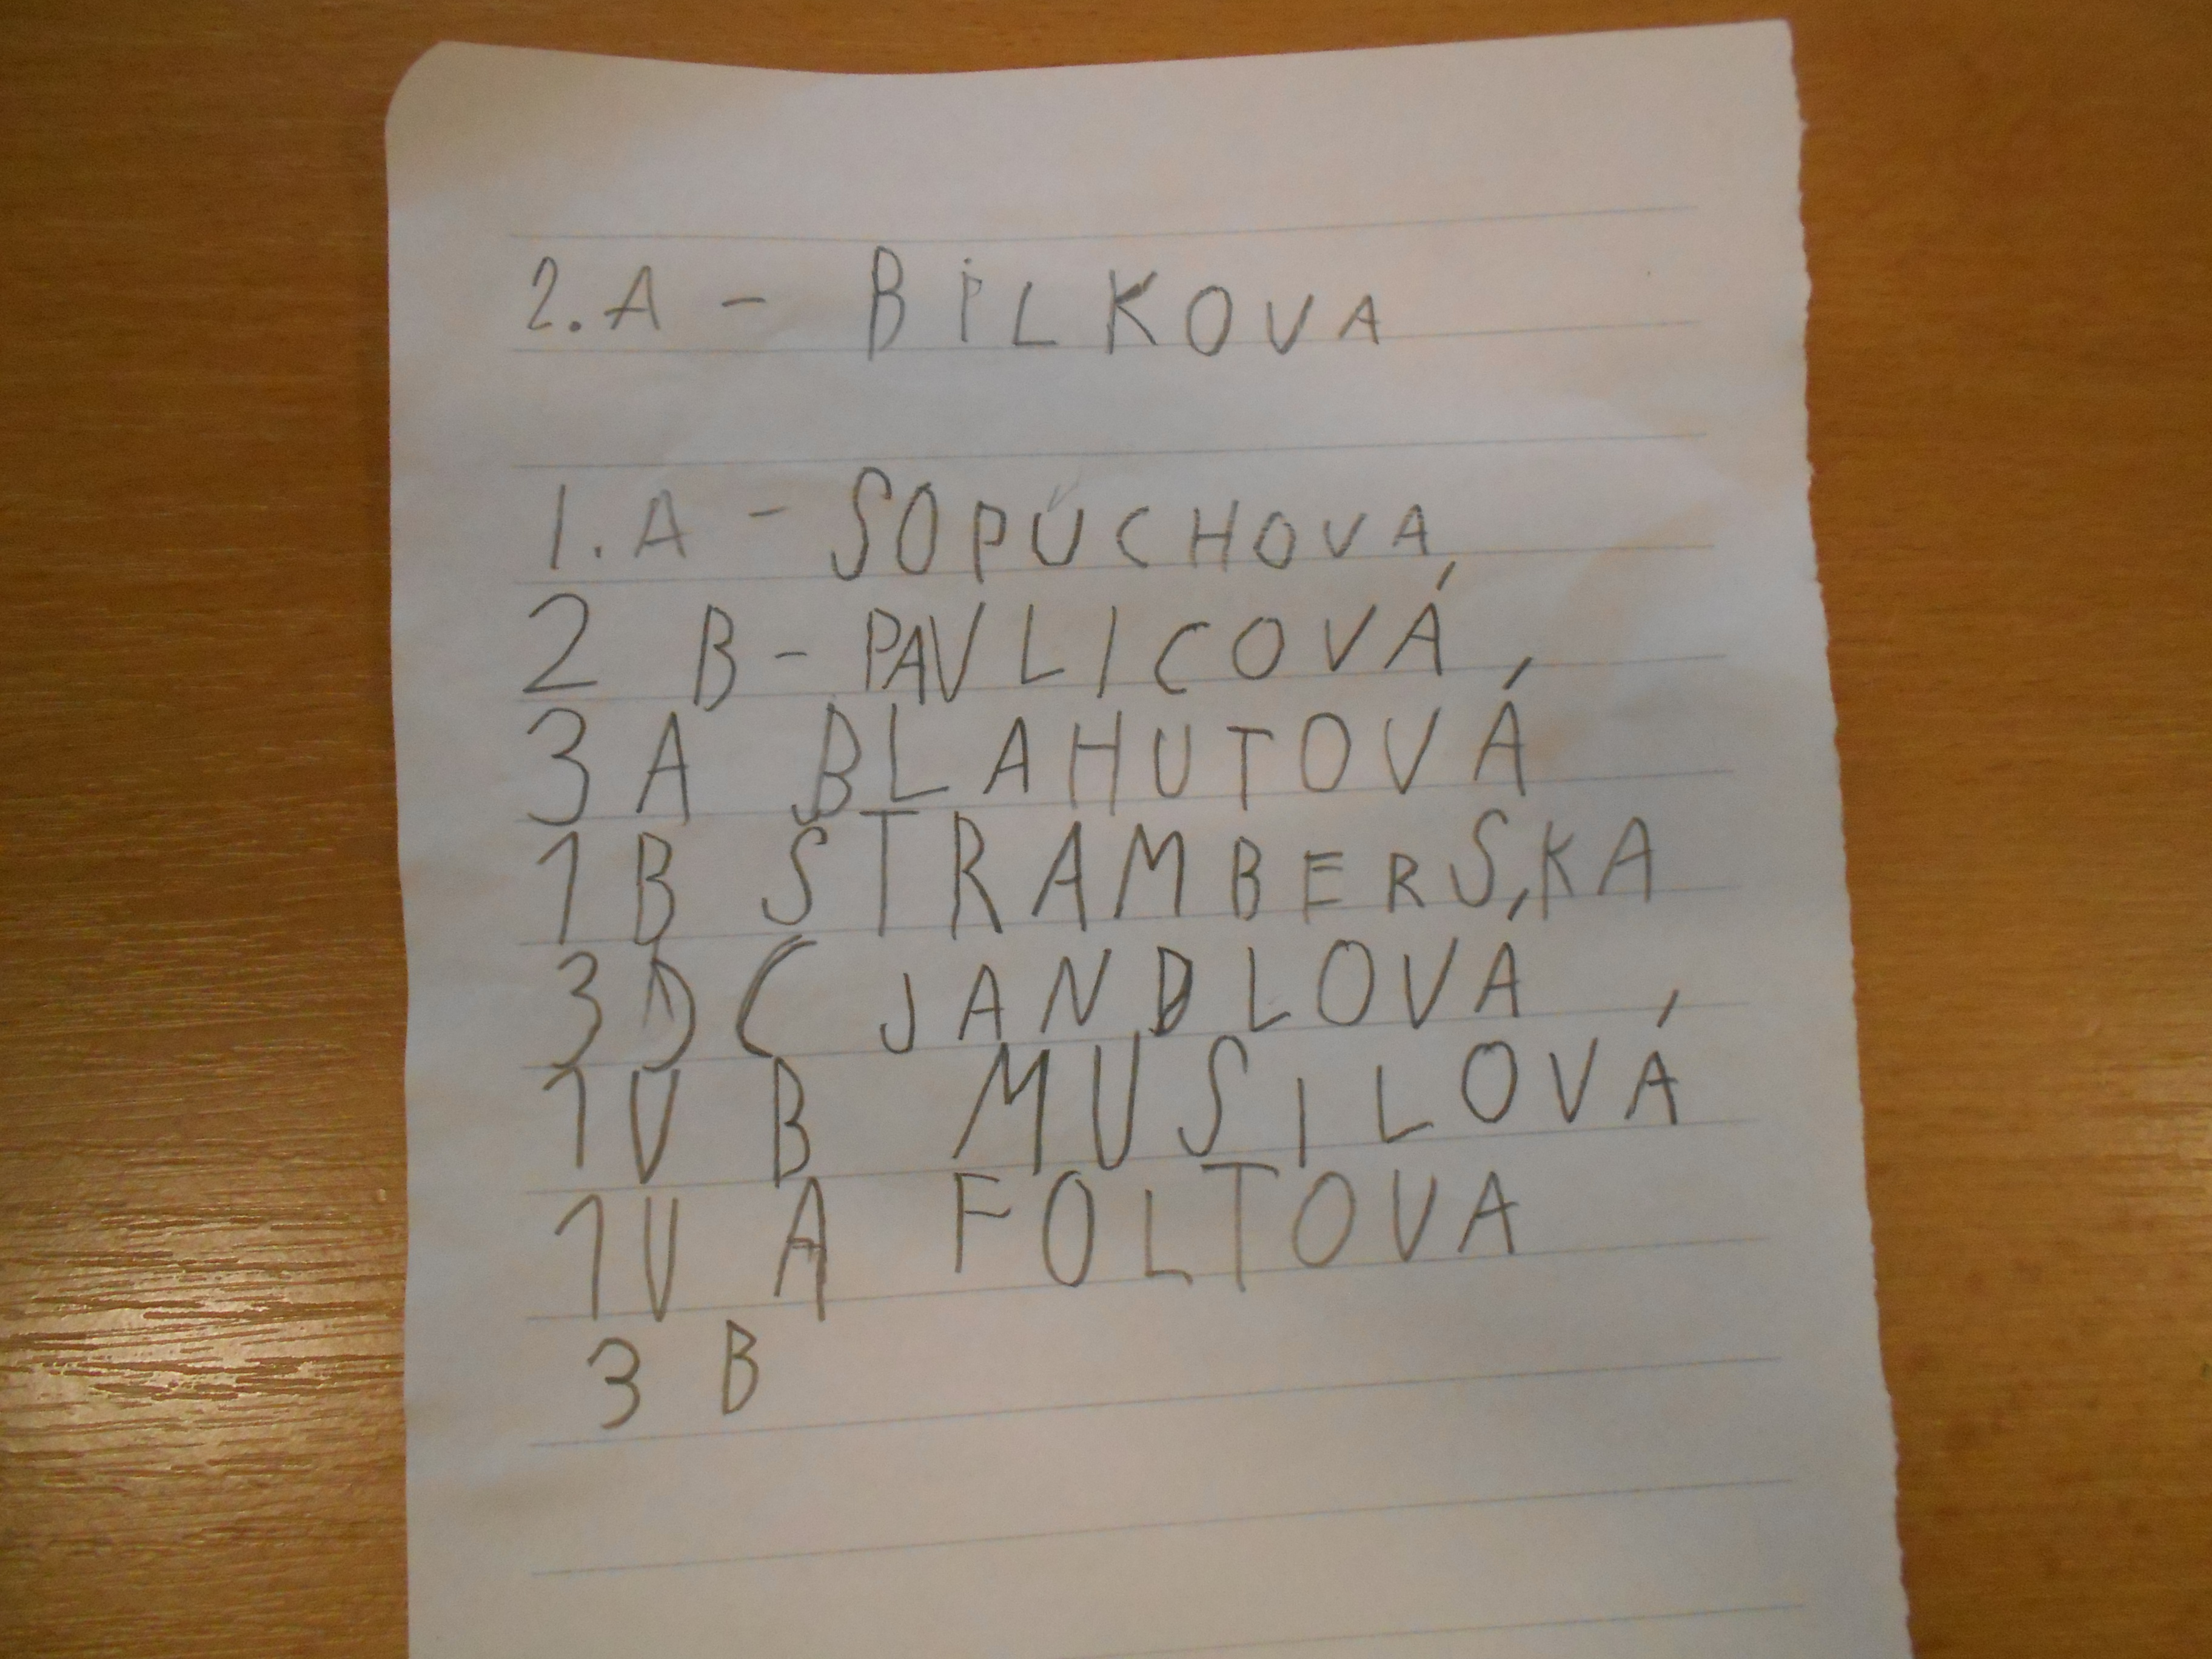 2.A - BÍLKOVA
1.A - SOPÚCHOVA
2 B - PAVLICOVÁ
3 A BLAHUTOVÁ
1B STRAMBERSKA
3 D C JANDLOVÁ
1V B MUSILOVÁ
1V A FOLTOVA
3 B